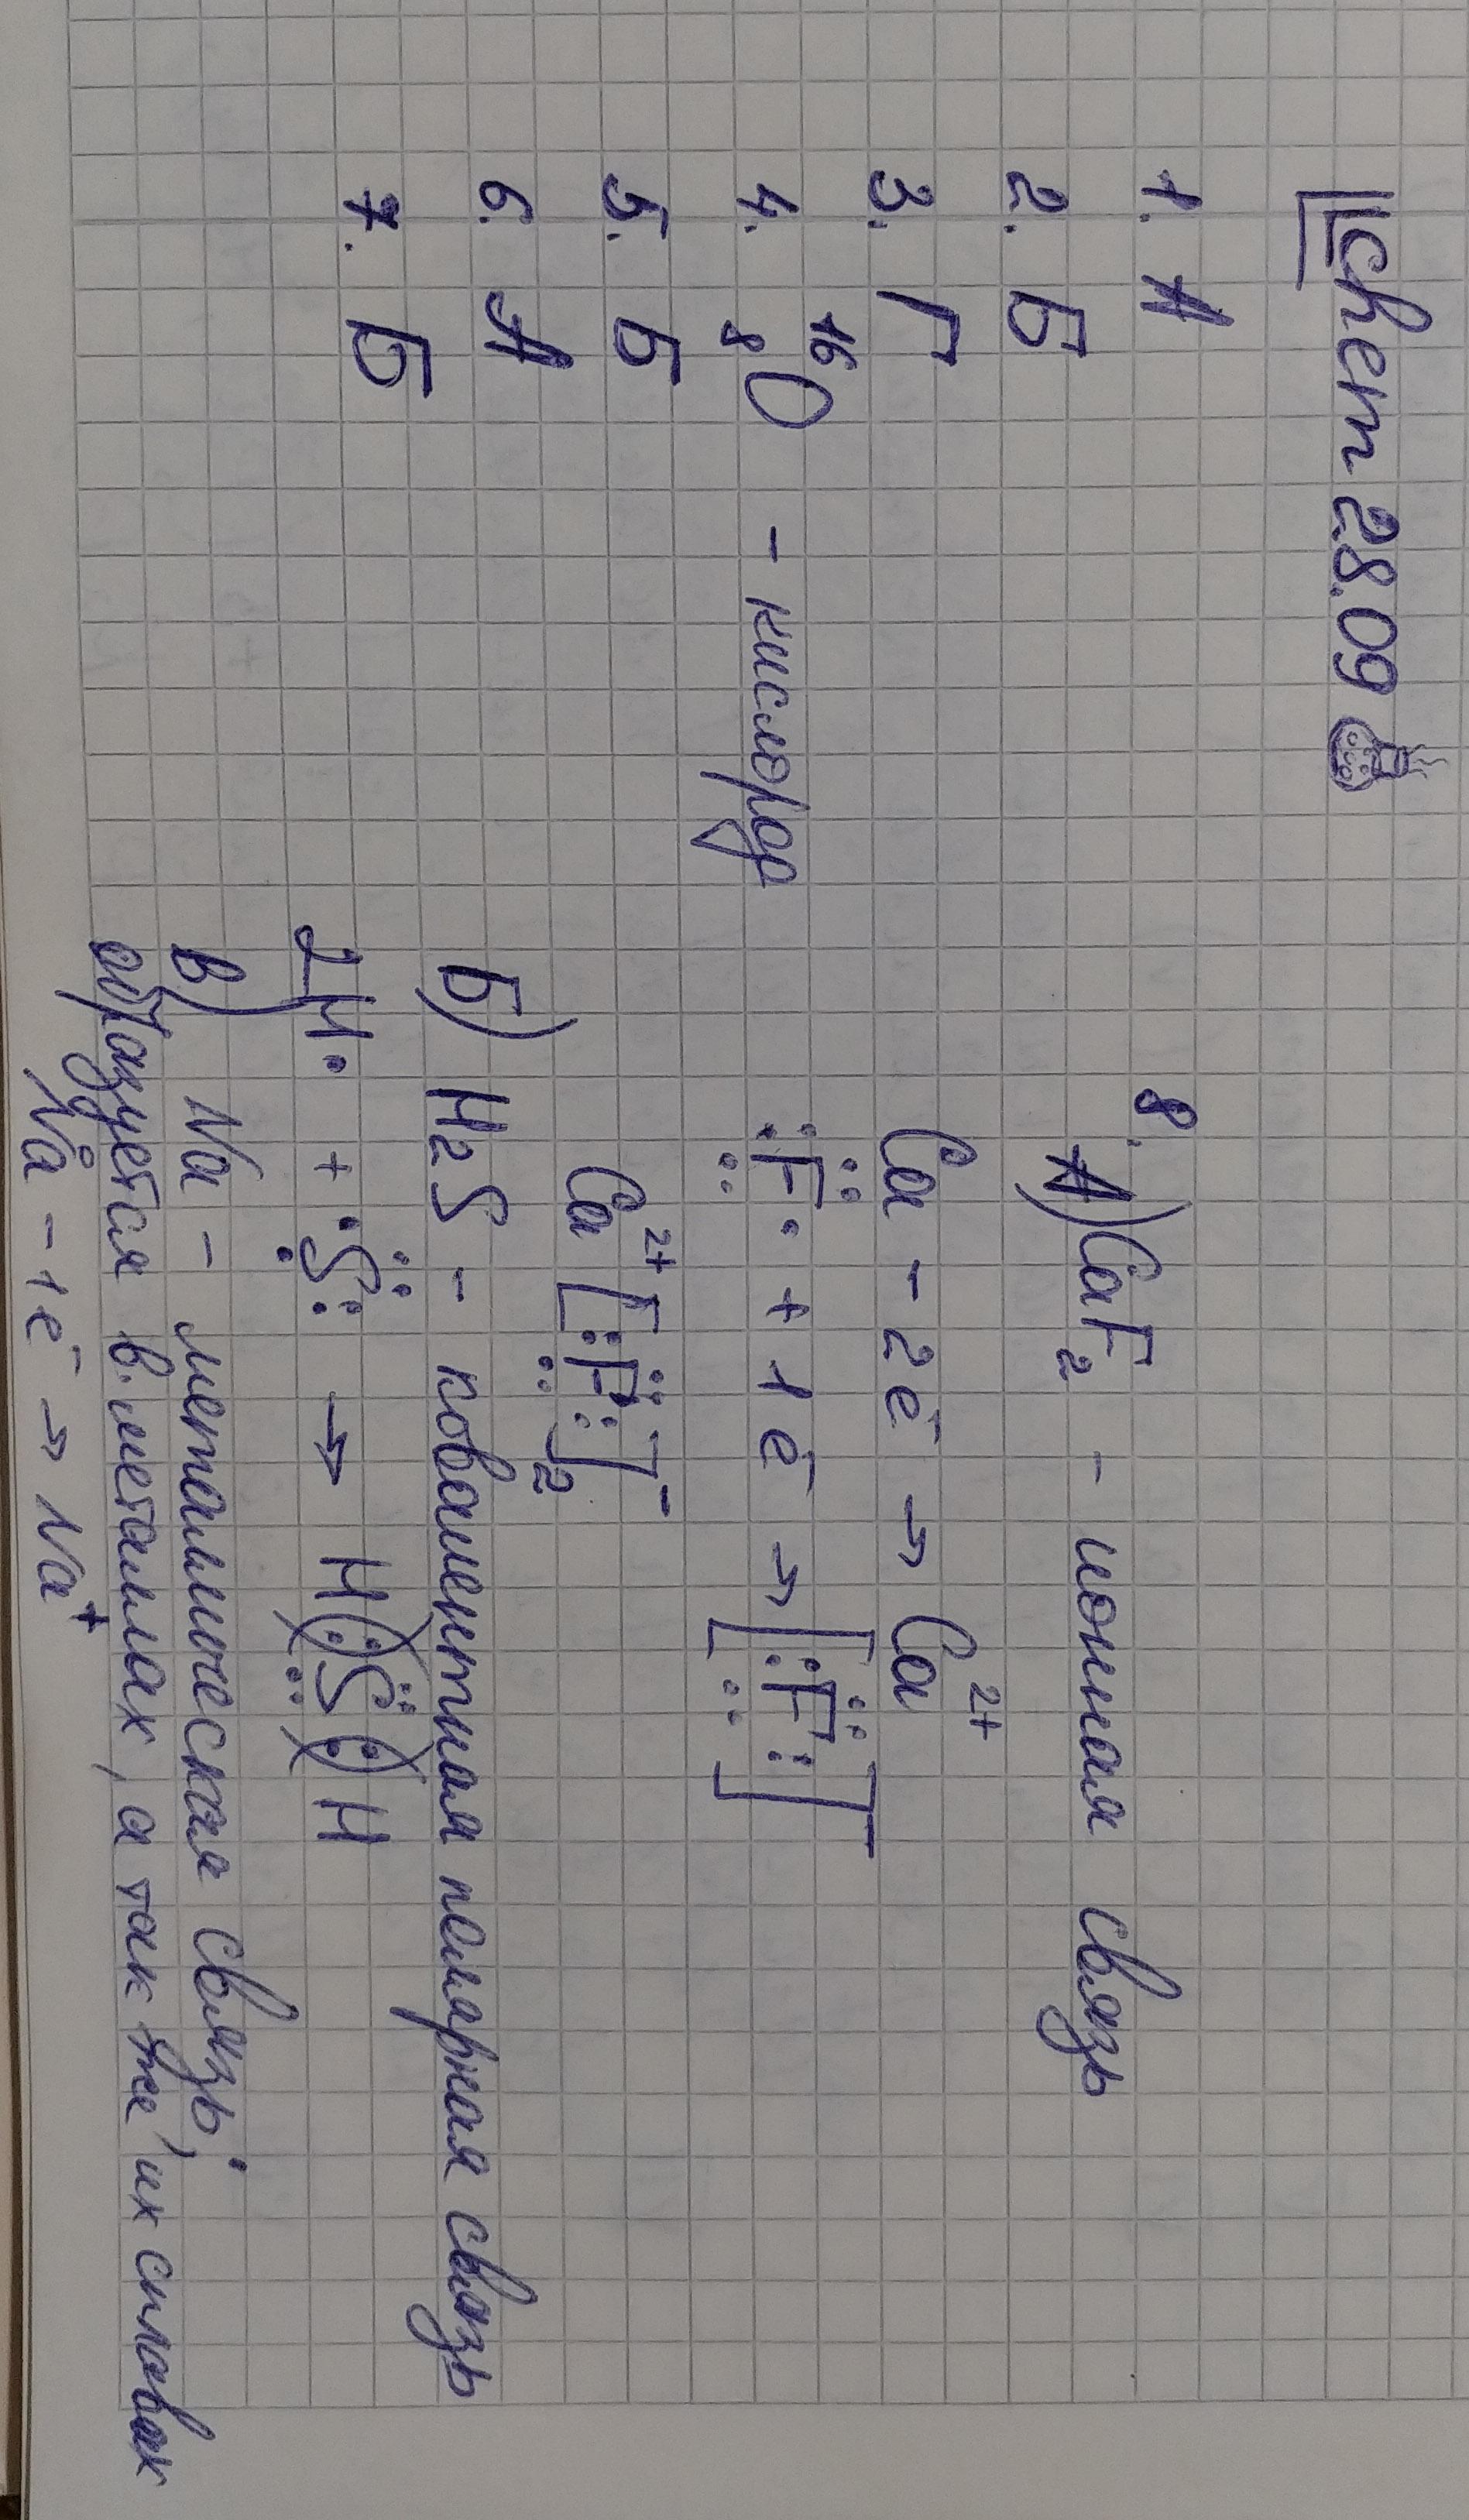 Chem 28.09
1. А
2. Б
3. Г
4. ¹⁶₈O - кислород
5. Б
6. А
7. Б
8.
А) CaF₂ - ионная связь
Ca - 2e⁻ → Ca²⁺
:F· + 1e⁻ → [:F:]⁻
Ca²⁺[:F:]₂⁻
Б) H₂S - ковалентная полярная связь
2H· + ·S: → H(:S:)H
В) Na - металлическая связь,
образуется в металлах, а так же их сплавах
Na - 1e⁻ → Na⁺